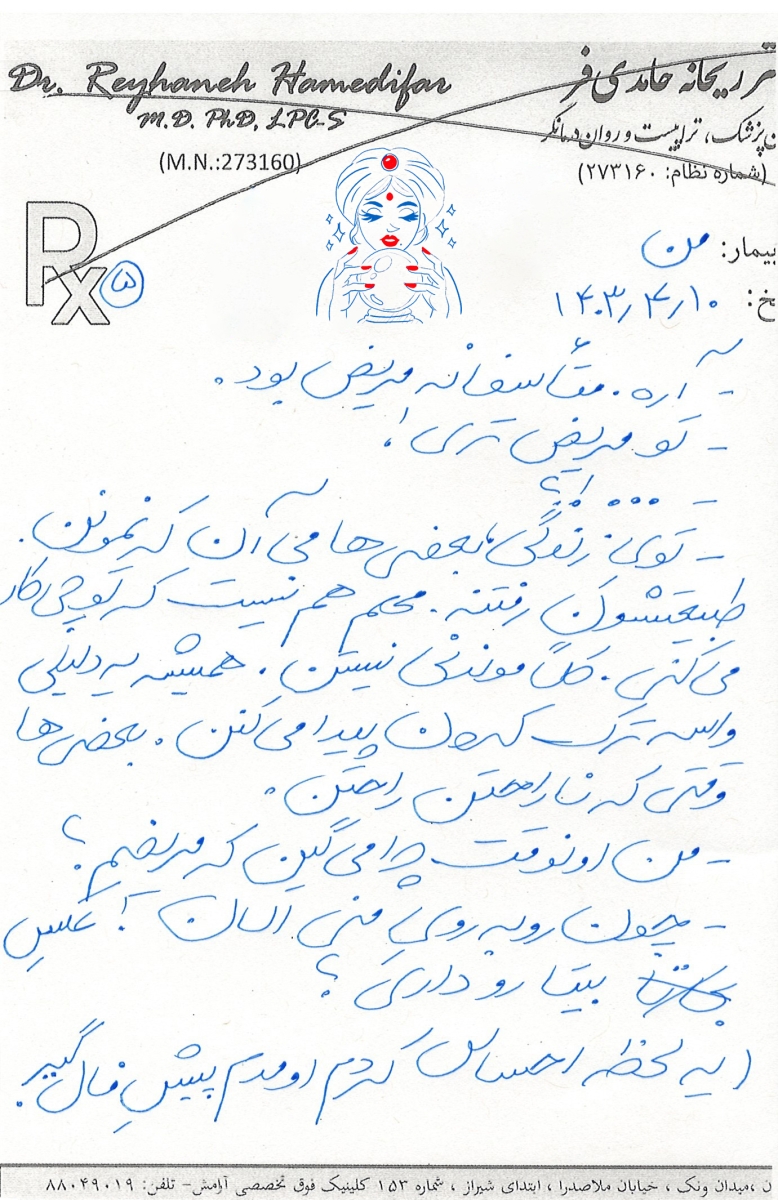 Dr. Reyhaneh Hamedifar
تر ریحانه حامدی فر
M.D. PhD, LPC-S
ن‌پزشک، تراپیست و روان درمانگر
(M.N.:273160)
(شماره نظام: ۲۷۳۱۶۰)
Rx ۵
بیمار: من
خ: ۱۴۰۳/۴/۱۰
- آره. متأسفانه مریض بود.
- تو مریض تری!
- ... !؟
- توی زندگی بعضی ها می آن که نمونن.
طبیعتشون رفتنه. مهم هم نیست که تو چی کار
می کنی. کلاً موندنی نیستن. همیشه یه دلیلی
واسه ترک کردن پیدا می کنن. بعضی ها
وقتی که ناراحتن راحتن.
- من اونوقت چرا می گین که مریضم؟
- چون روبه روی منی الان! عکسِ
بیتا رو داری؟
(یه لحظه احساس کردم اومدم پیشِ فال گیر.
ن ،میدان ونک ، خیابان ملاصدرا ، ابتدای شیراز ، شماره ۱۵۳ کلینیک فوق تخصصی آرامش- تلفن: ۸۸۰۴۹۰۱۹